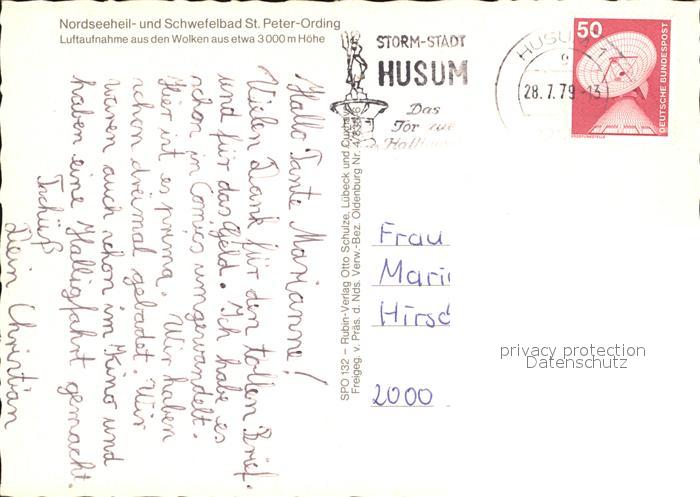 Nordseeheil- und Schwefelbad St. Peter-Ording
Luftaufnahme aus den Wolken aus etwa 3000 m Höhe
Hallo Tante Marianne!
Vielen Dank für den tollen Brief
und für das Geld. Ich habe es
schon in Comics umgewandelt.
Hier ist es prima. Wir haben
schon dreimal gebadet. Wir
waren auch schon im Kino und
haben eine Halligfahrt gemacht.
Tschüß
Dein Christian
SPO 132 – Rubin-Verlag Otto Schulze, Lübeck und
Freigeg. v. Präs. d. Nds. Verw.-Bez. Oldenburg Nr.
STORM-STADT
HUSUM
Das
Tor zur
HUSUM
28.7.79-13
50
DEUTSCHE BUNDESPOST
Frau
Mari
Hirsc
2000
privacy protection
Datenschutz